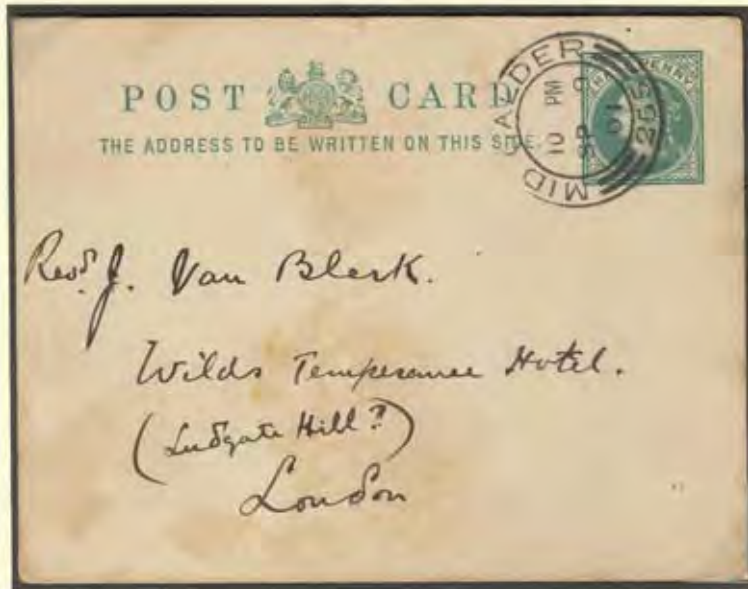 POST CARD
THE ADDRESS TO BE WRITTEN ON THIS SIDE.
MID CALDER
10 PM
SP 9
01
255
HALFPENNY
Revd. J. Van Blerk.
Wilds Temperance Hotel.
(Ludgate Hill?)
London